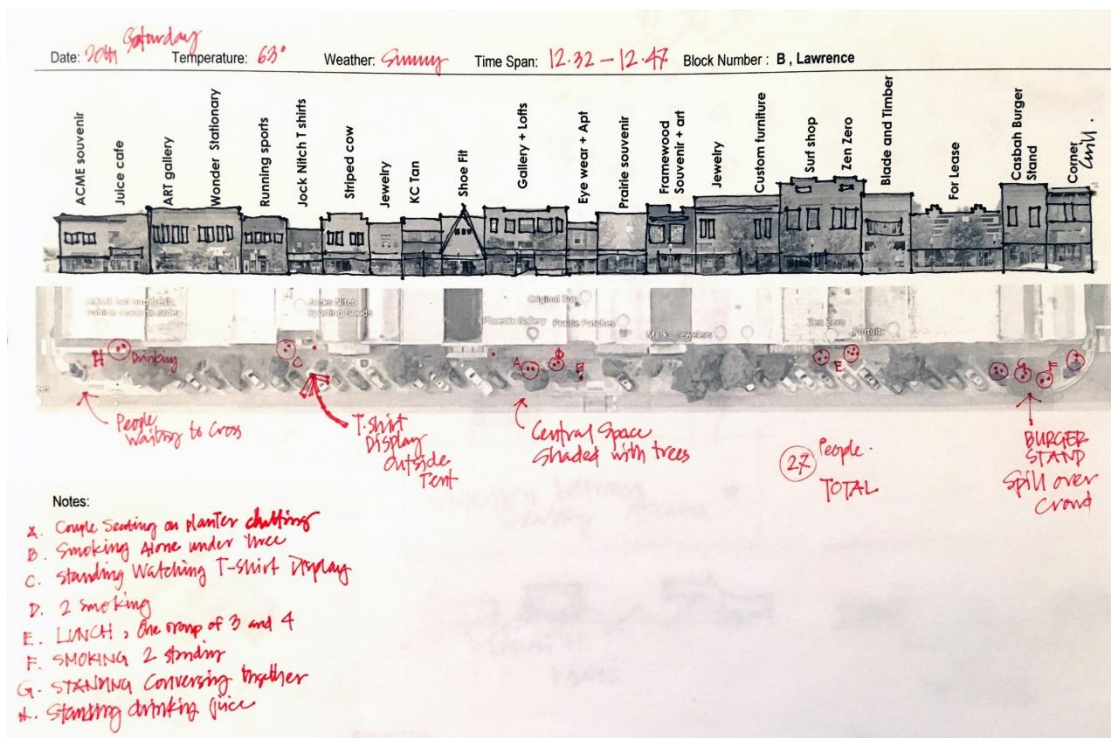 Saturday
Date: 20th Temperature: 63° Weather: Sunny Time Span: 12.32 – 12.47 Block Number : B , Lawrence
ACME souvenir
Juice cafe
ART gallery
Wonder Stationary
Running sports
Jock Nitch T shirts
Striped cow
Jewelry
KC Tan
Shoe Fit
Gallery + Lofts
Eye wear + Apt
Prairie souvenir
Framewood
Souvenir + art
Jewelry
Custom furniture
Surf shop
Zen Zero
Blade and Timber
For Lease
Casbah Burger
Stand
Corner
Grill.
Jocks Nitch
Sporting Goods
Original
Phoenix Gallery
Prairie Patches
Marks Jewelers
Zen Zero
Fortuity
H
Drinking
C
A
B
D
E
G
F
People
Waiting to Cross
T-shirt
Display
Outside
Tent
Central Space
Shaded with trees
27 People.
TOTAL
BURGER
STAND
Spill over
Crowd
Notes:
A. Couple Seating on planter chatting
B. Smoking Alone under tree
C. Standing Watching T-shirt Display
D. 2 smoking
E. LUNCH, One group of 3 and 4
F. SMOKING 2 standing
G. STANDING Conversing together
H. Standing drinking juice